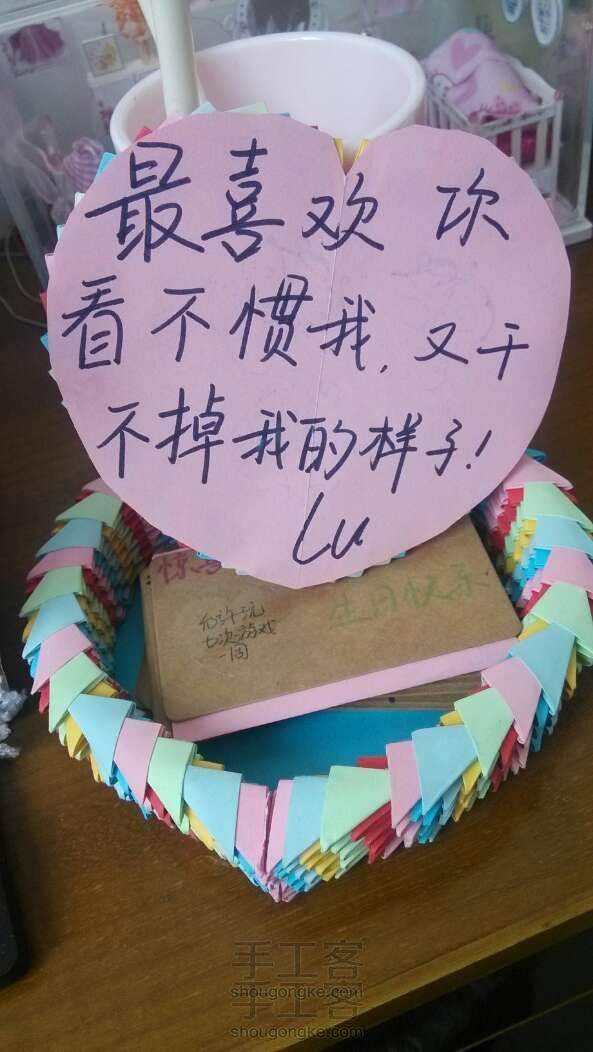 最喜欢 次
看不惯我,又干
不掉我的样子!
Lu
惊
生日快乐
允许玩
七次游戏
手工客
shougongke.com
shougongke.com